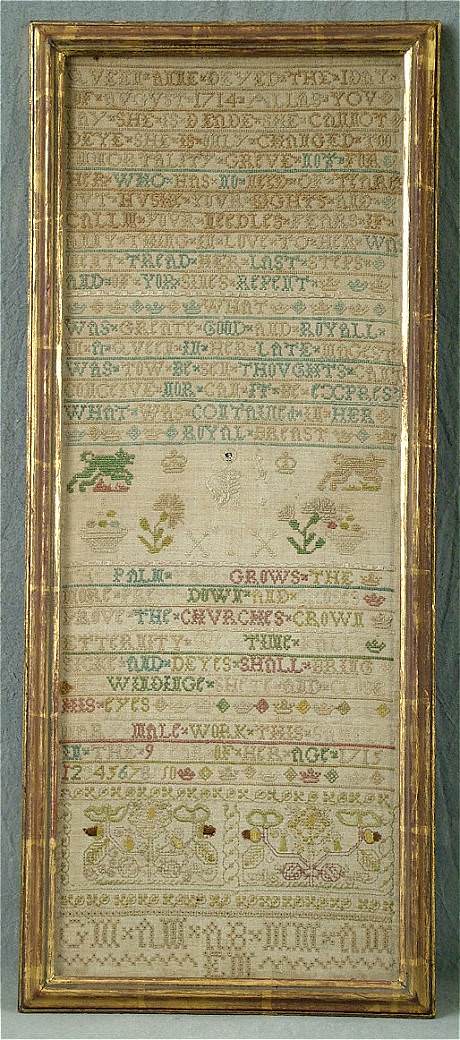 QVEEN ANNE DEYED THE 1 DAY
OF AVGVST 1714 ALLAS YOV
SAY SHE IS DEADE SHE CANNOT
DEYE SHE IS ONLY CHANGED TOO
IMMORTALITY GREVE NOT FOR
HER WHO HAS NO NEED OF TEARS
BVT HVSHE YOVR SIGHTS AND
CALLM YOVR NEEDLES FEARS IF
ANY THING IN LOVE TO HER WA
TREAD HER LAST STEPS
AND OF YOR SINES REPENT
WHAT
WAS GREATE GOOD AND ROYALL
IN A QVEEN IN HER LATE
WAS TOW BE SEN THOVGHTS
NOR CAN IT BE EXPRES
WHAT WAS CONTAINED IN HER
ROYAL BREAST
PALM GROWS THE
MORE DOWN AND
PROVE THE CHVRCHES CROWN
ETTERNITY TIME
AND DEYES SHALL BRING
WINDINGE SHETE AND CLOVE
HIS EYES
MALE WORK THIS
IN THE 9 OF HER AGE 1715
12 45678 10
AM AB MM AM
EM